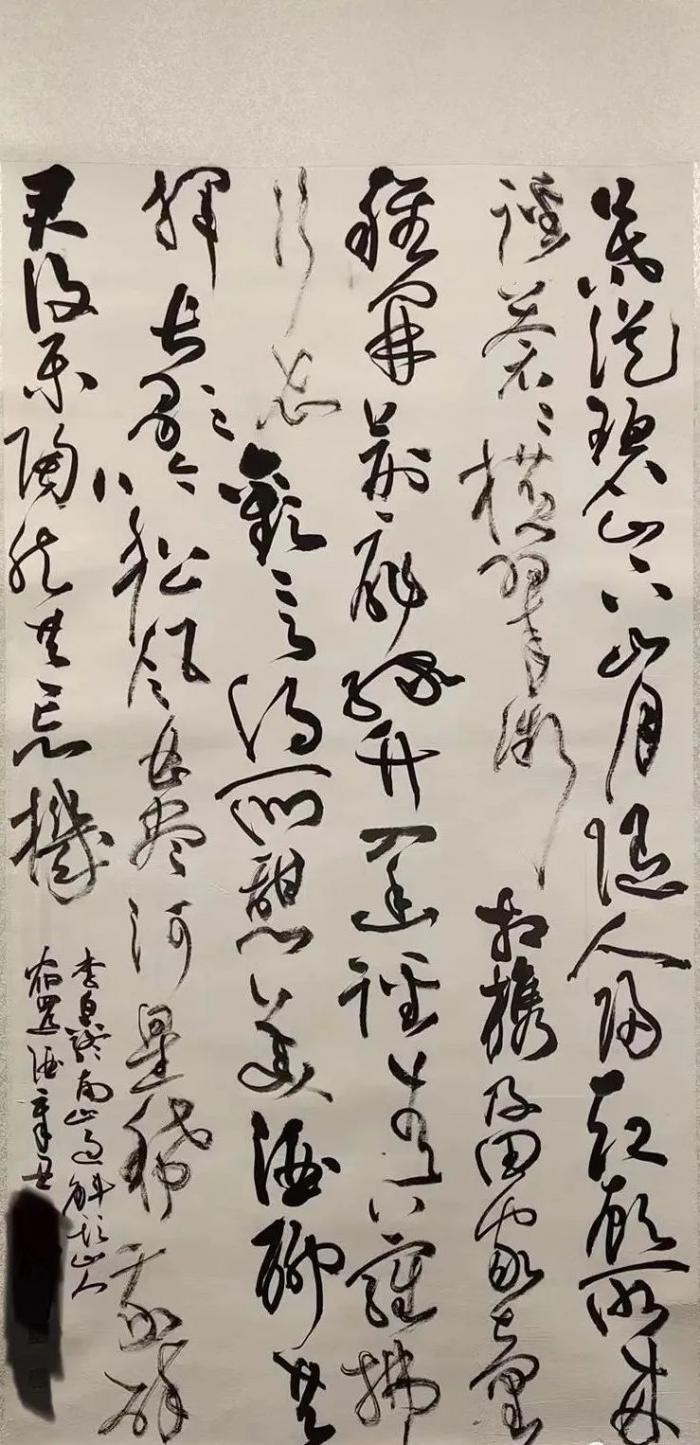 暮從碧山下山月隨人歸却顧所來
徑蒼〻橫翠微相攜及田家童
稚開荊扉綠竹入幽徑青蘿拂
行衣歡言得所憩美酒聊共
揮長歌吟松風曲盡河星稀我醉
君復樂陶然共忘機
李白終南山過斛斯山人
宿置酒辛丑